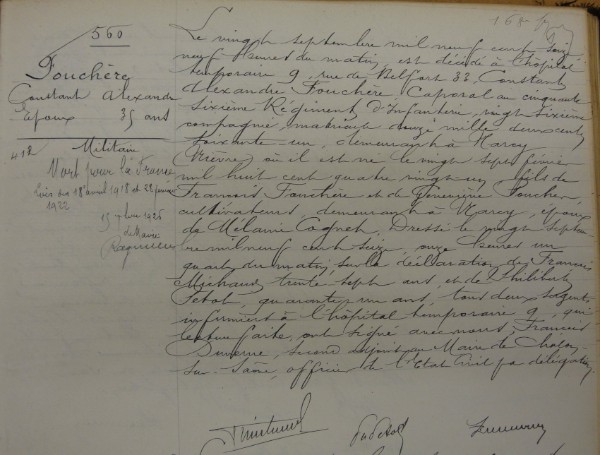 560
Fouchère
Constant Alexandre
Epoux 35 ans
Militaire
412
Mort pour la France
18 avril 1918 et 28
1922
1926
Le Maire
168
Le vingt septembre mil neuf cent seize
neuf heures du matin, est décédé à l'hôpital
temporaire 9, rue de Belfort 32, Constant
Alexandre Fouchère Caporal au cinquante
sixième Régiment d'Infanterie, vingt sixième
compagnie, matricule douze mille deux cent
soixante un, demeurant à Marcy
(Nièvre) où il est né le vingt sept février
mil huit cent quatre vingt un, fils de
François Fouchère et de Geneviève Foucher,
cultivateurs, demeurant à Marcy, époux
de Mélanie Dressé le vingt septem-
bre mil neuf cent seize, onze heures un
quart du matin, sur la déclaration de Francis
Michaud, trente sept ans, et de Philibert
Petot, quarante un ans, tous deux sergents
infirmiers à l'hôpital temporaire 9, qui
lecture faite, ont signé avec nous, Francois
second adjoint au Maire de Chalon
sur Saône, officier de l'Etat Civil par délégation